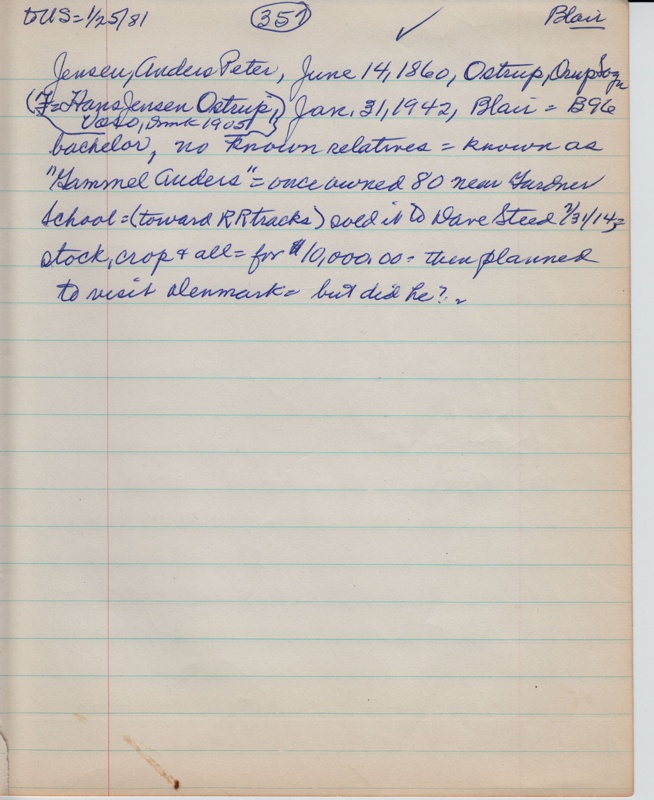 to US = 1/25/81 357 Blair
Jensen, Anders Peter, June 14, 1860, Ostrup, Sogn
(F = Hans Jensen Ostrup,) Jan. 31, 1942, Blair = B96
Dmk 1905
bachelor, no known relatives = known as
"Gammel Anders" = once owned 80 near Gardner
School = (toward RR tracks) sold it to Dave Steed 7/31/14, =
stock, crop & all = for $10,000.00 = then planned
to visit Denmark = but did he?.